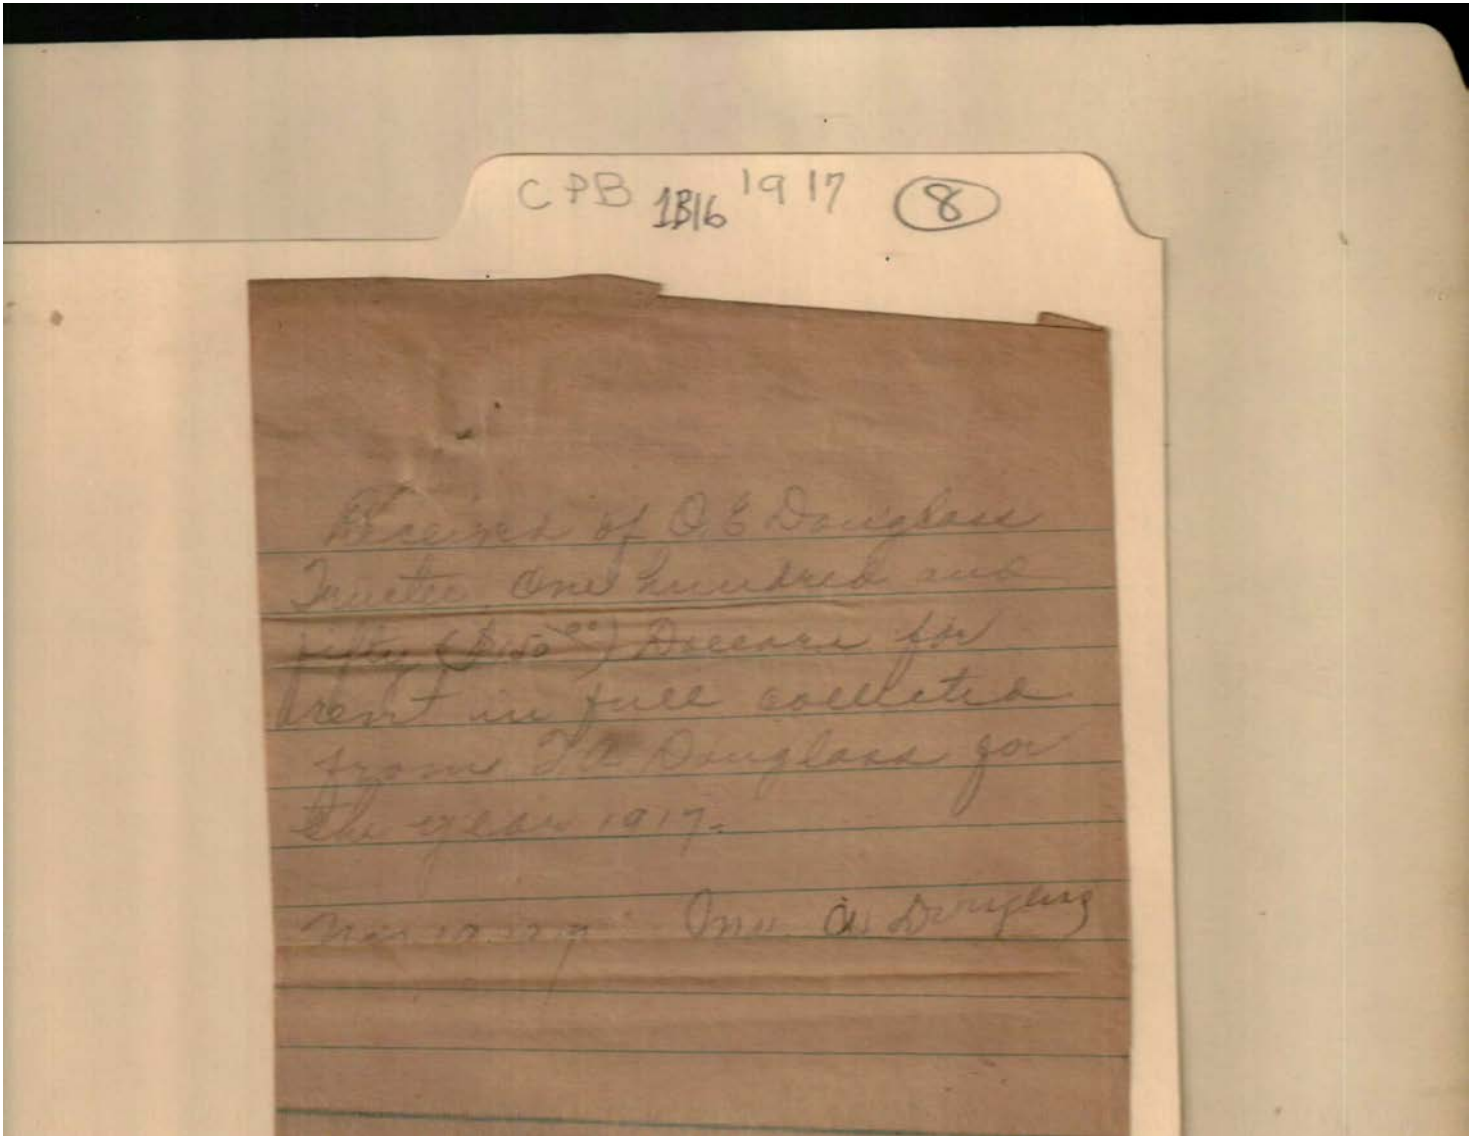 CPB 1B16 1917 8
Received of O. E. Douglass
Trustee One hundred and
fifty ($150⁰⁰) Dollars for
rent in full collected
from Douglass for
the year 1917.
A. Douglass